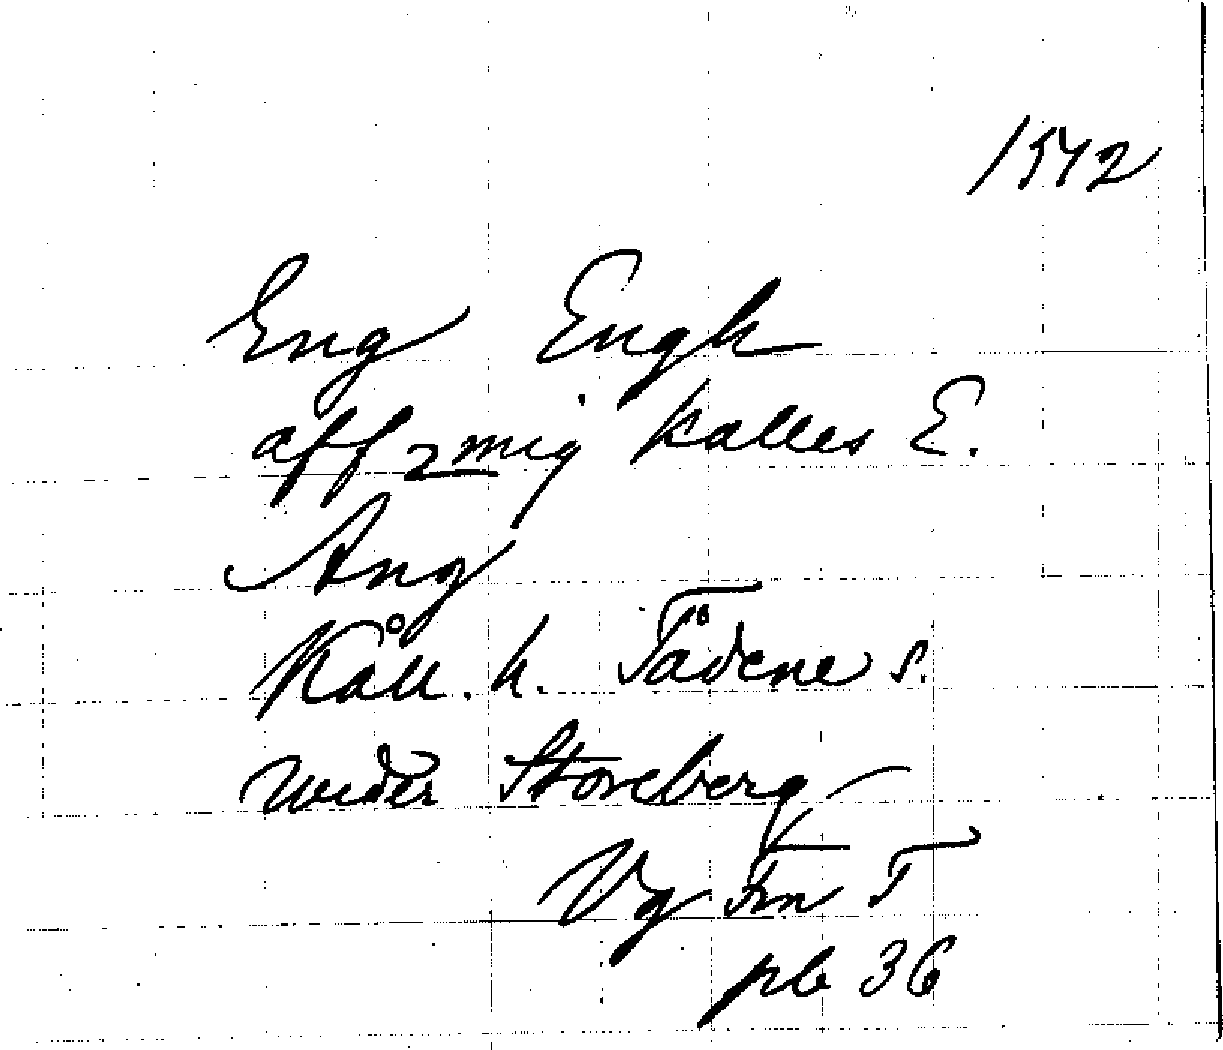 1542
Eng Engh
aff 2 mig kalles E.
Äng
Kåll. h. Tådene s.
under Storeberg
Vg Frn T
pb 36